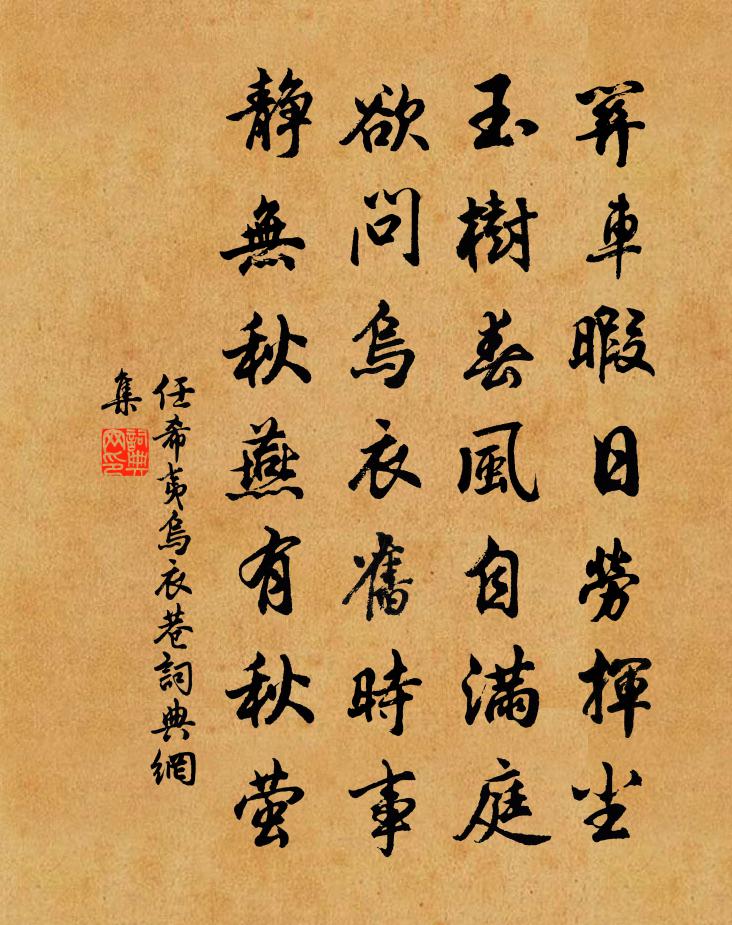 車暇日勞揮尘
玉樹春風自滿庭
欲問烏衣舊時事
靜無秋燕有秋萤
任希夷烏衣巷詞典網
集
詞典
网印